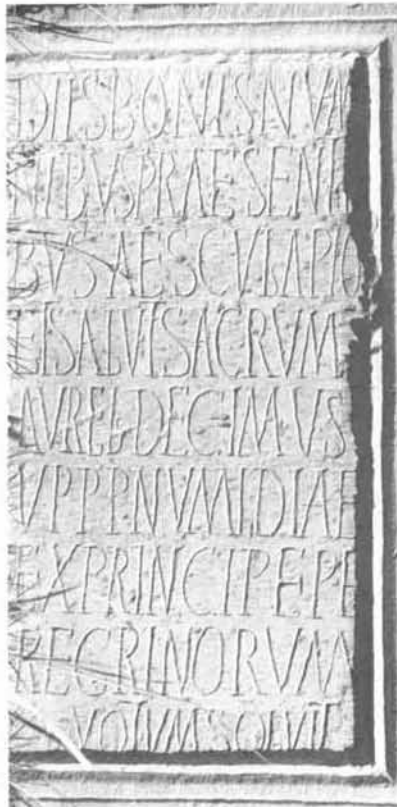 DIIS BONIS NVM
INIBVS PRAESENTI
BVS AESCVLAPIO
ET SALVTI SACRVM
AVREL DECIMVS
V P P P NVMIDIAE
EX PRINCIPE PE
REGRINORVM
VOTVM SOLVIT